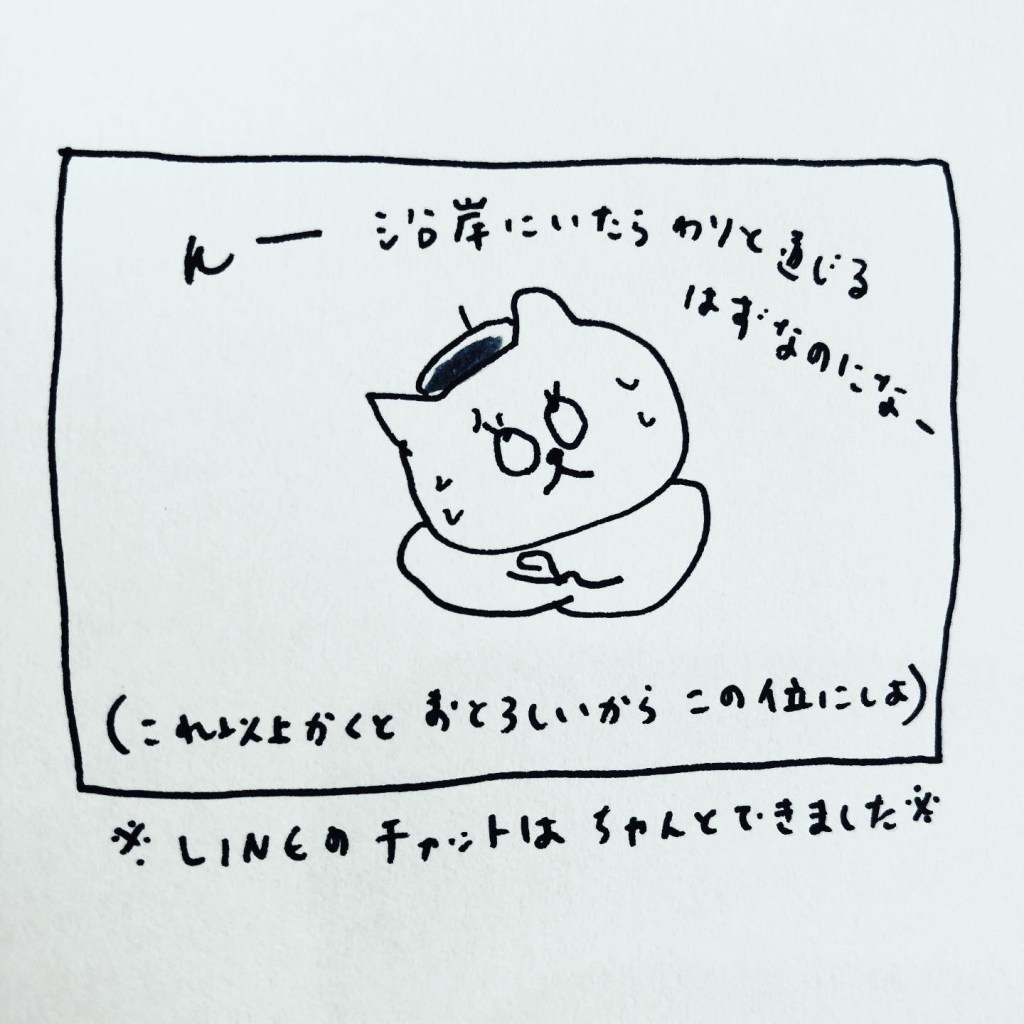 んー 沿岸にいたら わりと通じる
はずなのになー
(これ以上かくと おとろしいから この位にしよ)
※ LINEの チャットは ちゃんとできました※